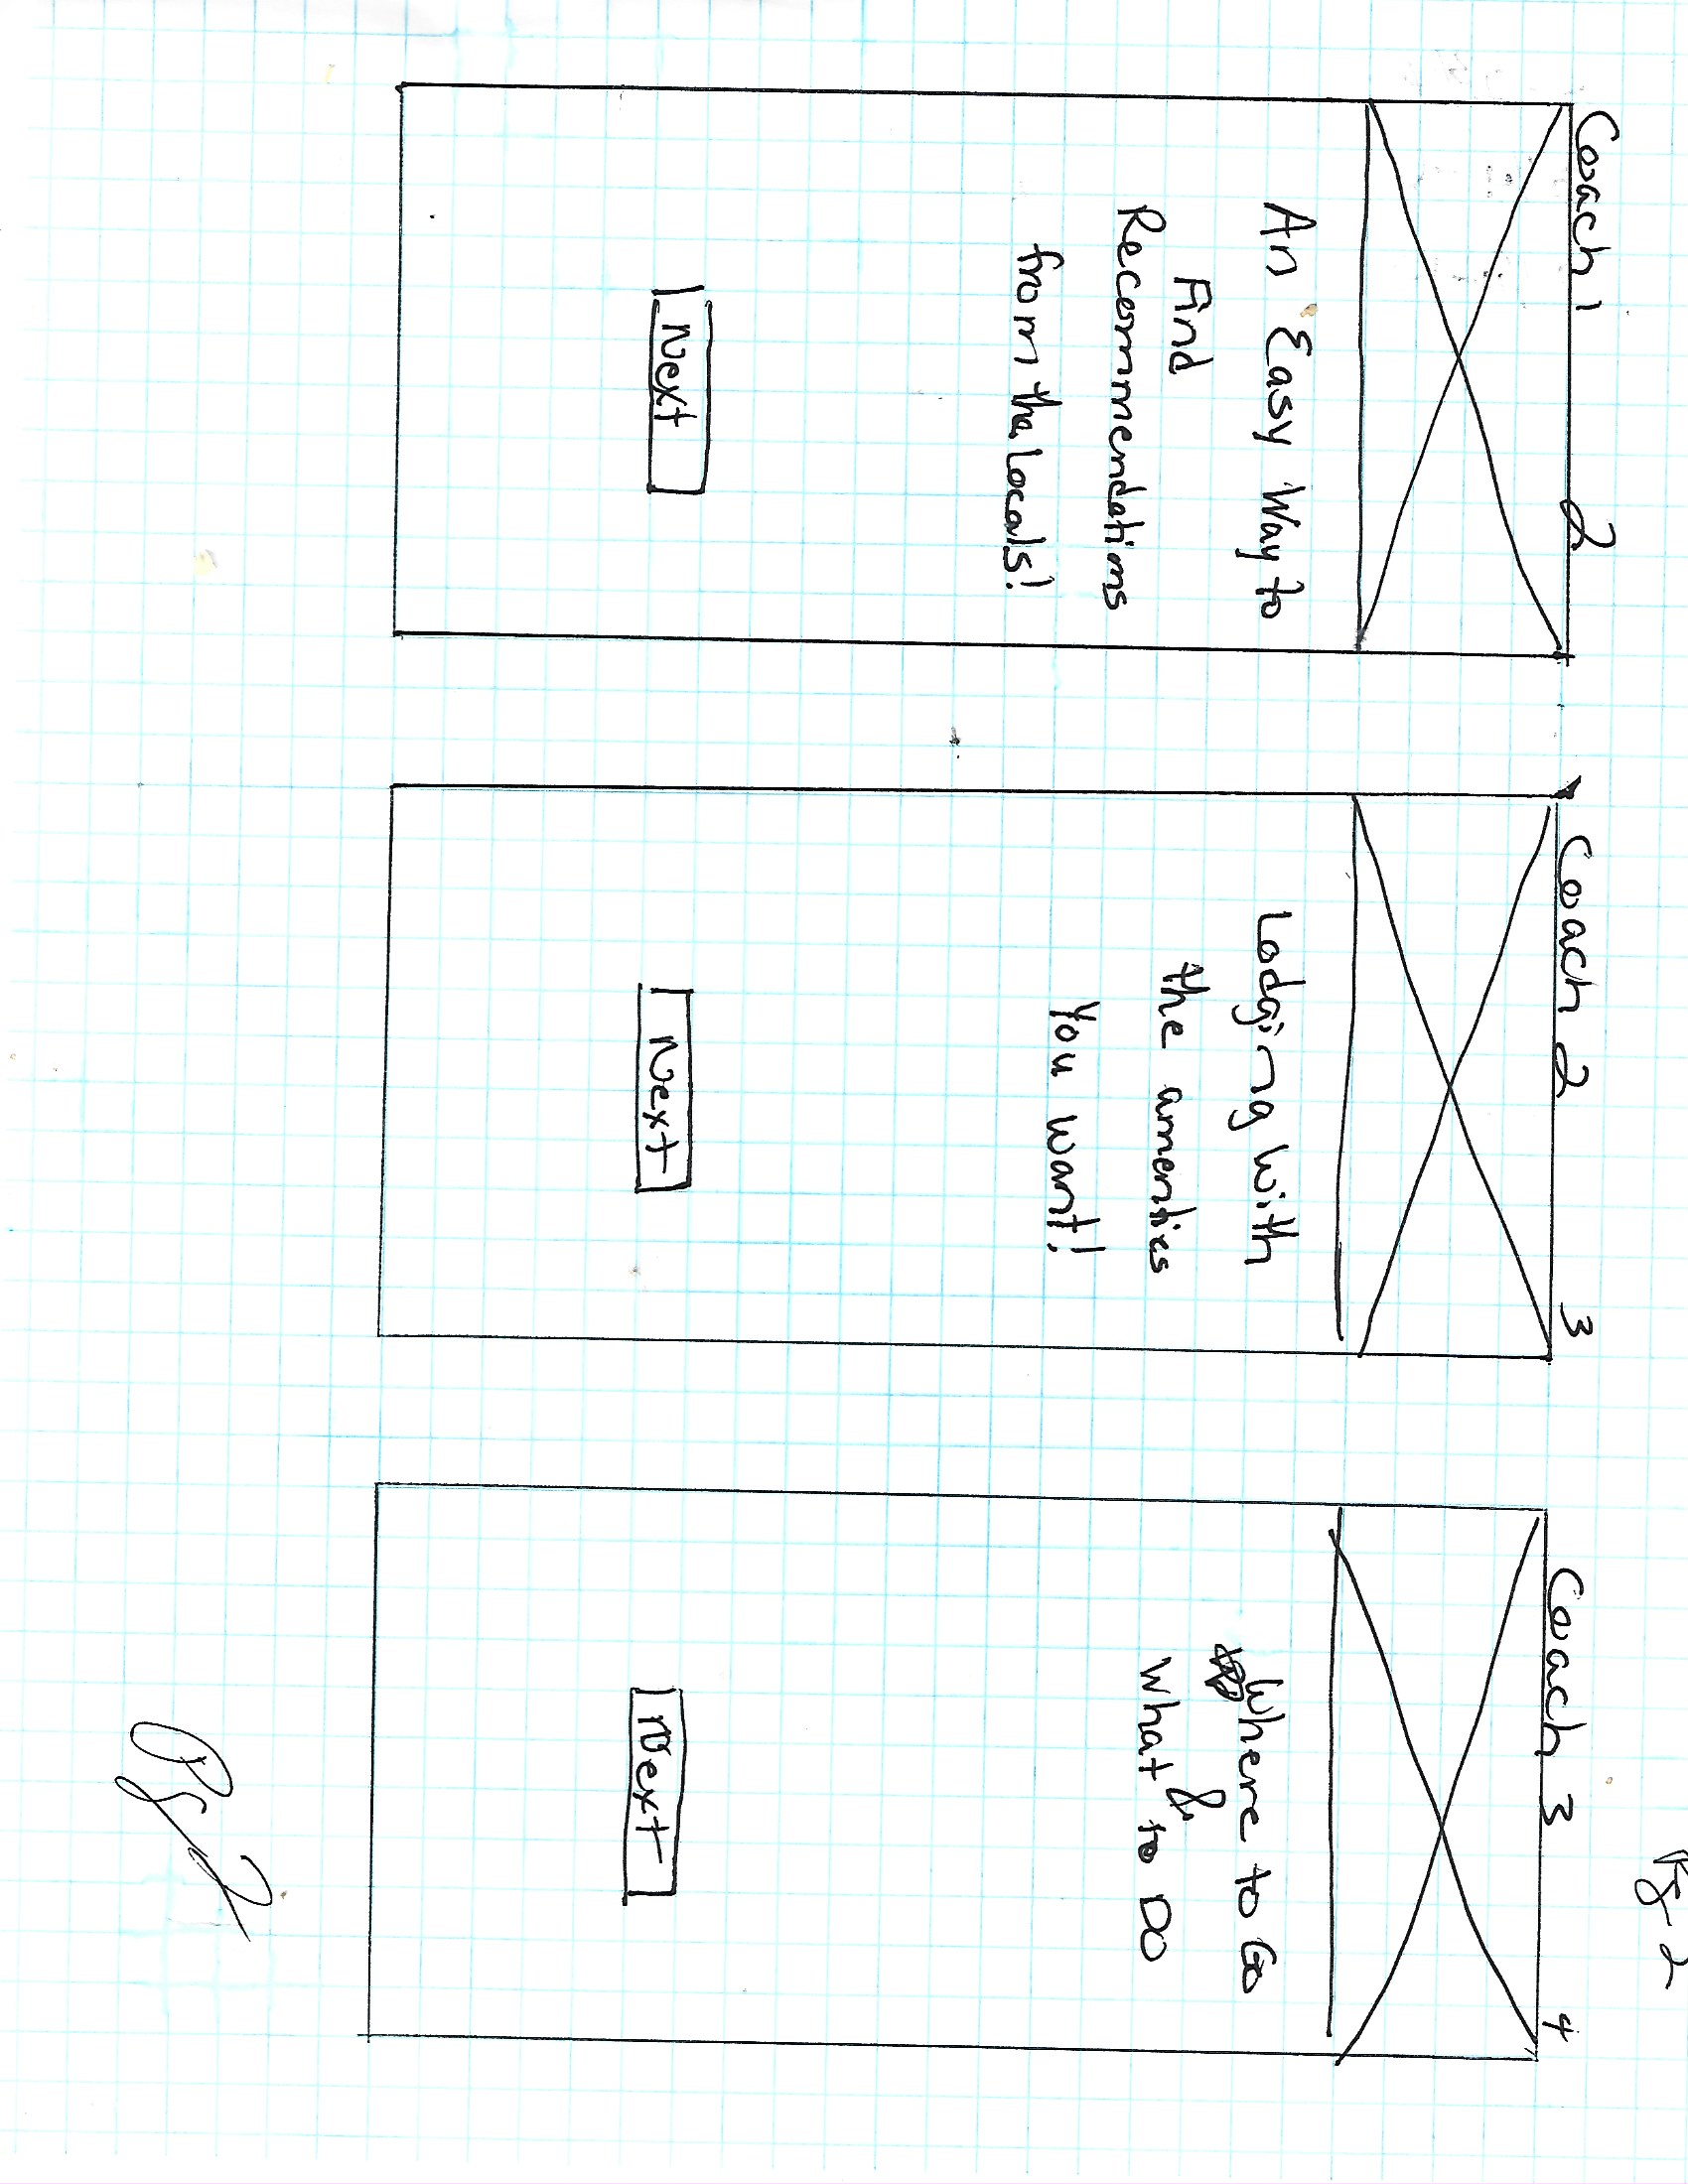 Pg 2
Coach 1 2
An Easy Way to
Find
Recommendations
from the Locals!
Next
Coach 2 3
Lodging with
the amenties
You want!
Next
Coach 3 4
Where to Go
&
What to DO
Next
Pg 2